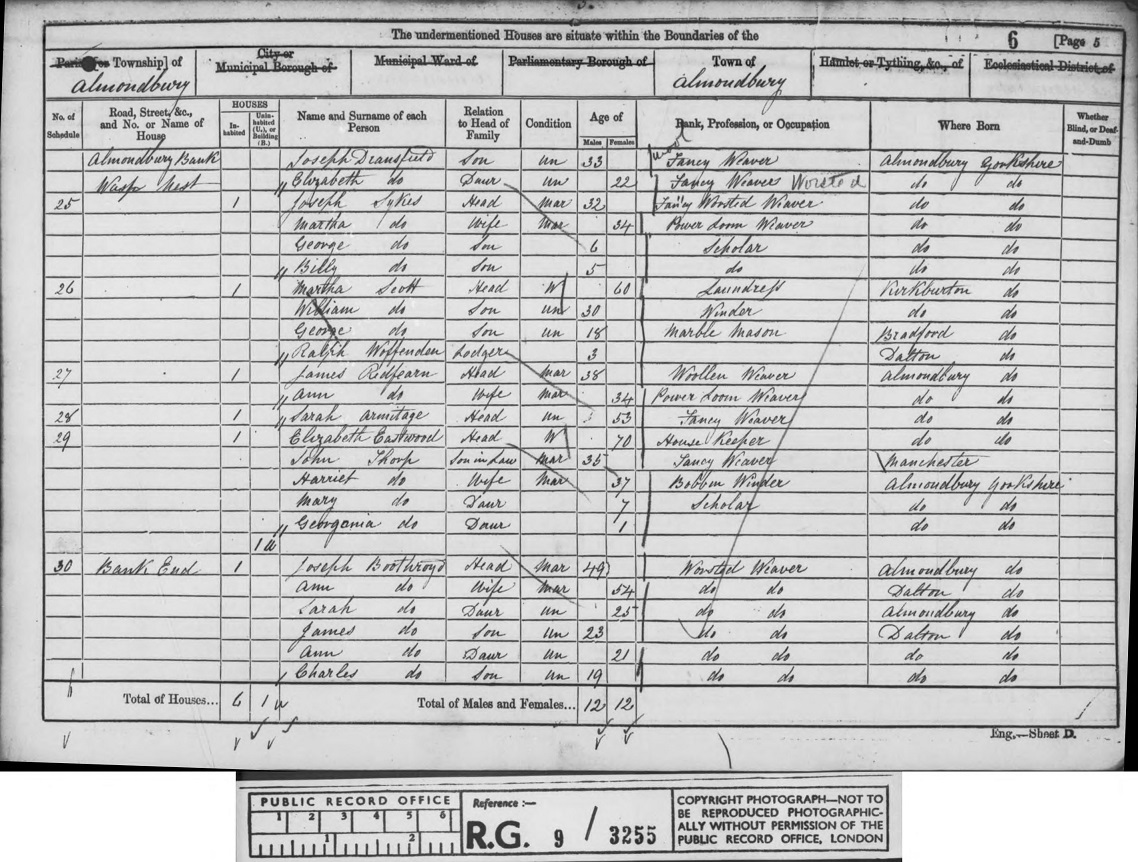 The undermentioned Houses are situate within the Boundaries of the
6 [Page 5
Township] of City or Municipal Borough of Municipal Ward of Parliamentary Borough of Town of Hamlet or Tything, &c., of Ecclesiastical District of
Almondbury Almondbury
No. of Schedule Road, Street, &c., and No. or Name of House HOUSES Inhabited Uninhabited (U.), or Building (B.) Name and Surname of each Person Relation to Head of Family Condition Age of Males Females Rank, Profession, or Occupation Where Born Whether Blind, or Deaf-and-Dumb
Almondbury Bank Joseph Dransfield Son un 33 Fancy Weaver Almondbury Yorkshire
Wasp Nest Elizabeth do Daur un 22 Fancy Weaver Worsted do do
25 1 Joseph Sykes Head mar 32 Fancy Worsted Weaver do do
Martha do Wife mar 34 Power Loom Weaver do do
George do Son 6 Scholar do do
Billy do Son 5 do do do
26 1 Martha Scott Head W 60 Laundress Kirkburton do
William do Son un 30 Winder do do
George do Son un 18 Marble Mason Bradford do
Ralph Woffenden Lodger 3 Dalton do
27 1 James Redfearn Head mar 38 Woollen Weaver Almondbury do
Ann do Wife mar 34 Power Loom Weaver do do
28 1 Sarah Armitage Head un 53 Fancy Weaver do do
29 1 Elizabeth Eastwood Head W 70 House Keeper do do
John Thorp Son in Law mar 35 Fancy Weaver Manchester
Harriet do Wife mar 37 Bobbin Winder Almondbury Yorkshire
Mary do Daur 7 Scholar do do
Georgania do Daur 1 do do
1 u
30 Bank End 1 Joseph Boothroyd Head mar 49 Worsted Weaver Almondbury do
Ann do Wife mar 54 do do Dalton do
Sarah do Daur un 25 do do Almondbury do
James do Son un 23 do do Dalton do
Ann do Daur un 21 do do do do
Charles do Son un 19 do do do do
Total of Houses... 6 1 u Total of Males and Females... 12 12
Eng.—Sheet D.
PUBLIC RECORD OFFICE
1 2 3 4 5 6
1 2
Reference :—
R.G. 9 / 3255
COPYRIGHT PHOTOGRAPH—NOT TO
BE REPRODUCED PHOTOGRAPHIC-
ALLY WITHOUT PERMISSION OF THE
PUBLIC RECORD OFFICE, LONDON